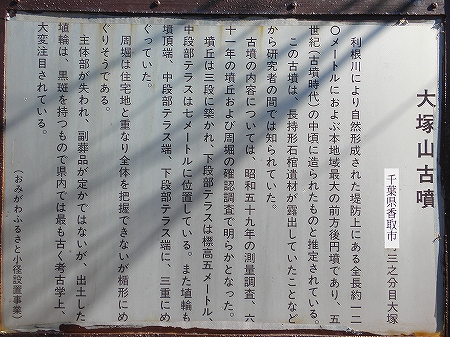 大塚山古墳
千葉県香取市 三之分目大塚
利根川により自然形成された堤防上にある全長約一二
〇メートルにおよぶ本地域最大の前方後円墳であり、五
世紀(古墳時代)の中頃に造られたものと推定されている。
この古墳は、長持形石棺遺材が露出していたことなど
から研究者の間では知られていた。
古墳の内容については、昭和五十九年の測量調査、六
十一年の墳丘および周堀の確認調査で明らかとなった。
墳丘は三段に築かれ、下段部テラスは標高五メートル、
中段部テラスは七メートルに位置している。また埴輪も
墳頂端、中段部テラス端、下段部テラス端に、三重にめ
ぐっていた。
周堀は住宅地と重なり全体を把握できないが楯形にめ
ぐりそうである。
主体部が失われ、副葬品が定かではないが、出土した
埴輪は、黒斑を持つもので県内では最も古く考古学上、
大変注目されている。
(おみがわふるさと小径設置事業)